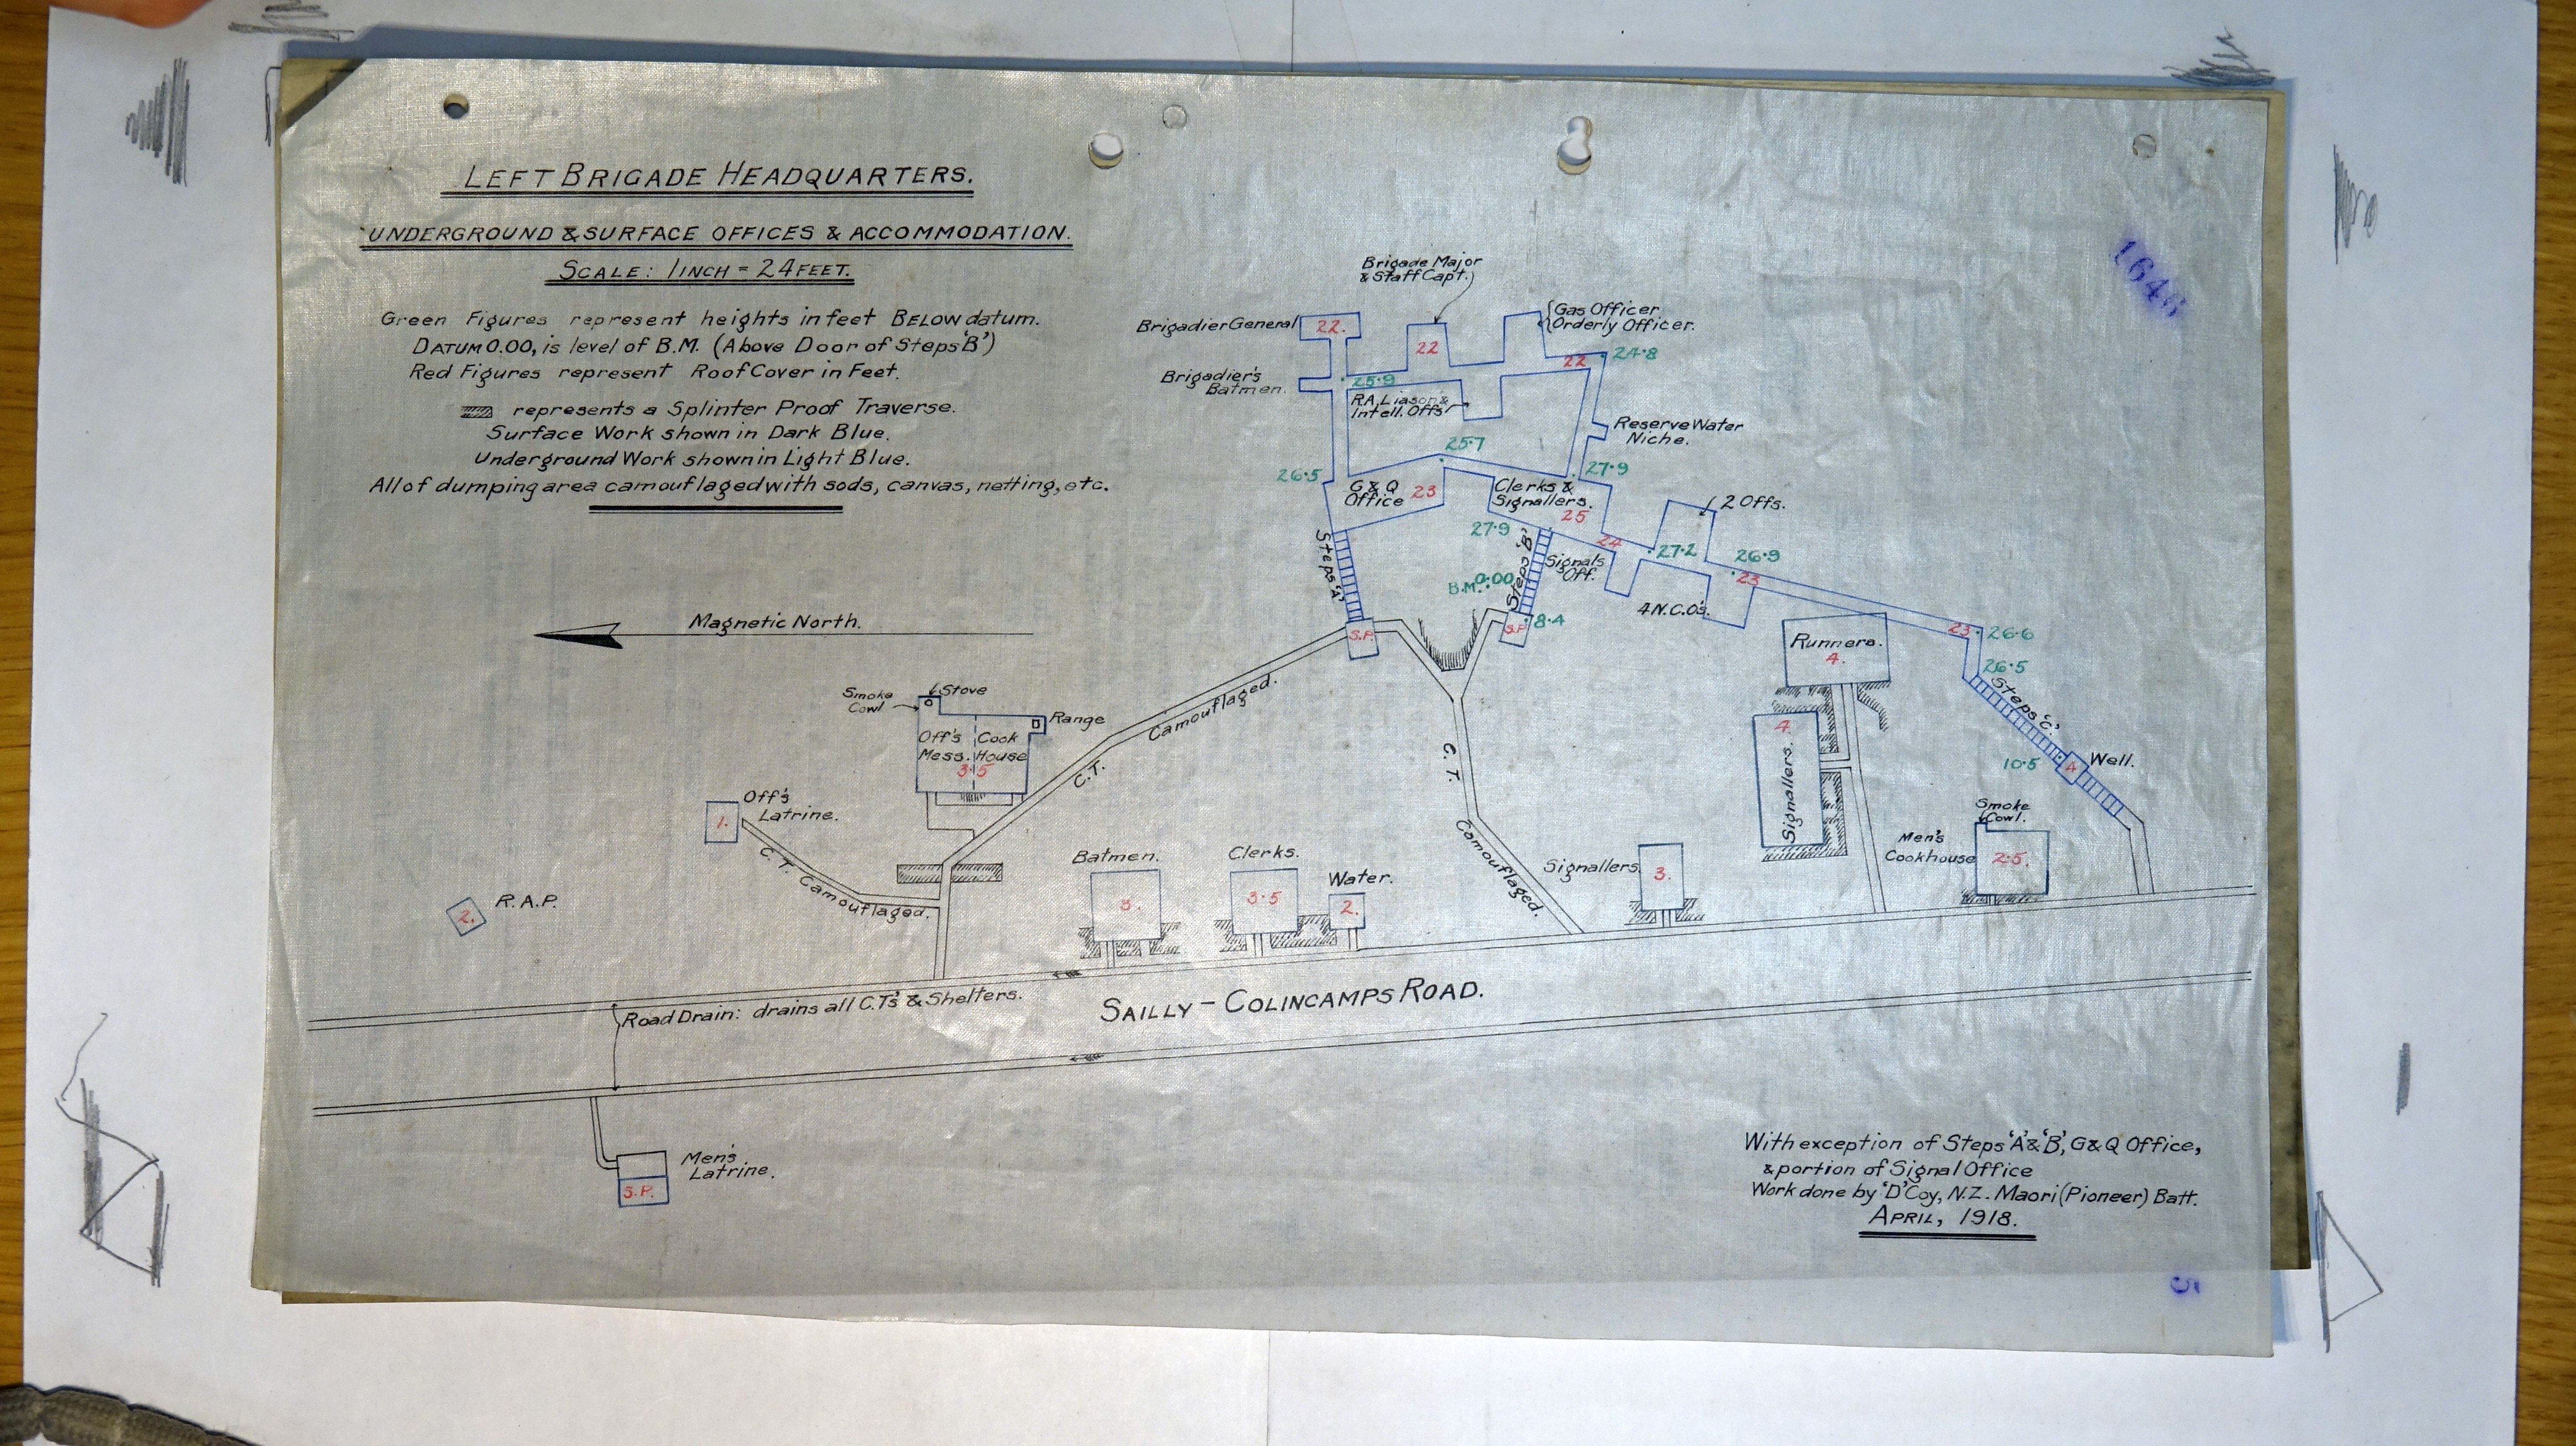 LEFT BRIGADE HEADQUARTERS.
UNDERGROUND & SURFACE OFFICES & ACCOMMODATION.
SCALE: 1 INCH = 24 FEET.
Green Figures represent heights in feet BELOW datum.
DATUM 0.00, is level of B.M. (Above Door of Steps B')
Red Figures represent Roof Cover in Feet.
represents a Splinter Proof Traverse.
Surface Work shown in Dark Blue.
Underground Work shown in Light Blue.
All of dumping area camouflaged with sods, canvas, netting, etc.
1646
Brigade Major
& Staff Capt.
Brigadier General
22.
22
Gas Officer
Orderly Officer.
22
24·8
Brigadier's
Batmen.
25·9
R.A. Liason &
Intell. Offs
Reserve Water
Niche.
25·7
26·5
27·9
G & Q
Office
23
Clerks &
Signallers.
25
2 Offs.
27·9
24
27·2
26·9
23
Steps 'A'
Steps 'B'
Signals
Off.
B.M. 0·00
4 N.C.O's.
S.P.
S.P.
8·4
Magnetic North.
Runners.
4.
23
26·6
26·5
Steps 'C'
Smoke
Cowl
Stove
Range
Off's
Mess.
Cook
House
3·5
Camouflaged.
C.T.
C.T.
Camouflaged.
4.
Signallers.
10·5
4
Well.
Off's
Latrine.
1.
C.T. Camouflaged.
Smoke
Cowl.
Men's
Cookhouse
2·5.
Batmen.
3.
Clerks.
3·5
Water.
2.
Signallers.
3.
2.
R.A.P.
Road Drain: drains all C.T's & Shelters.
SAILLY – COLINCAMPS ROAD.
Men's
Latrine.
S.P.
With exception of Steps 'A' & 'B', G & Q Office,
& portion of Signal Office
Work done by 'D' Coy, N.Z. Maori (Pioneer) Batt.
APRIL, 1918.
5